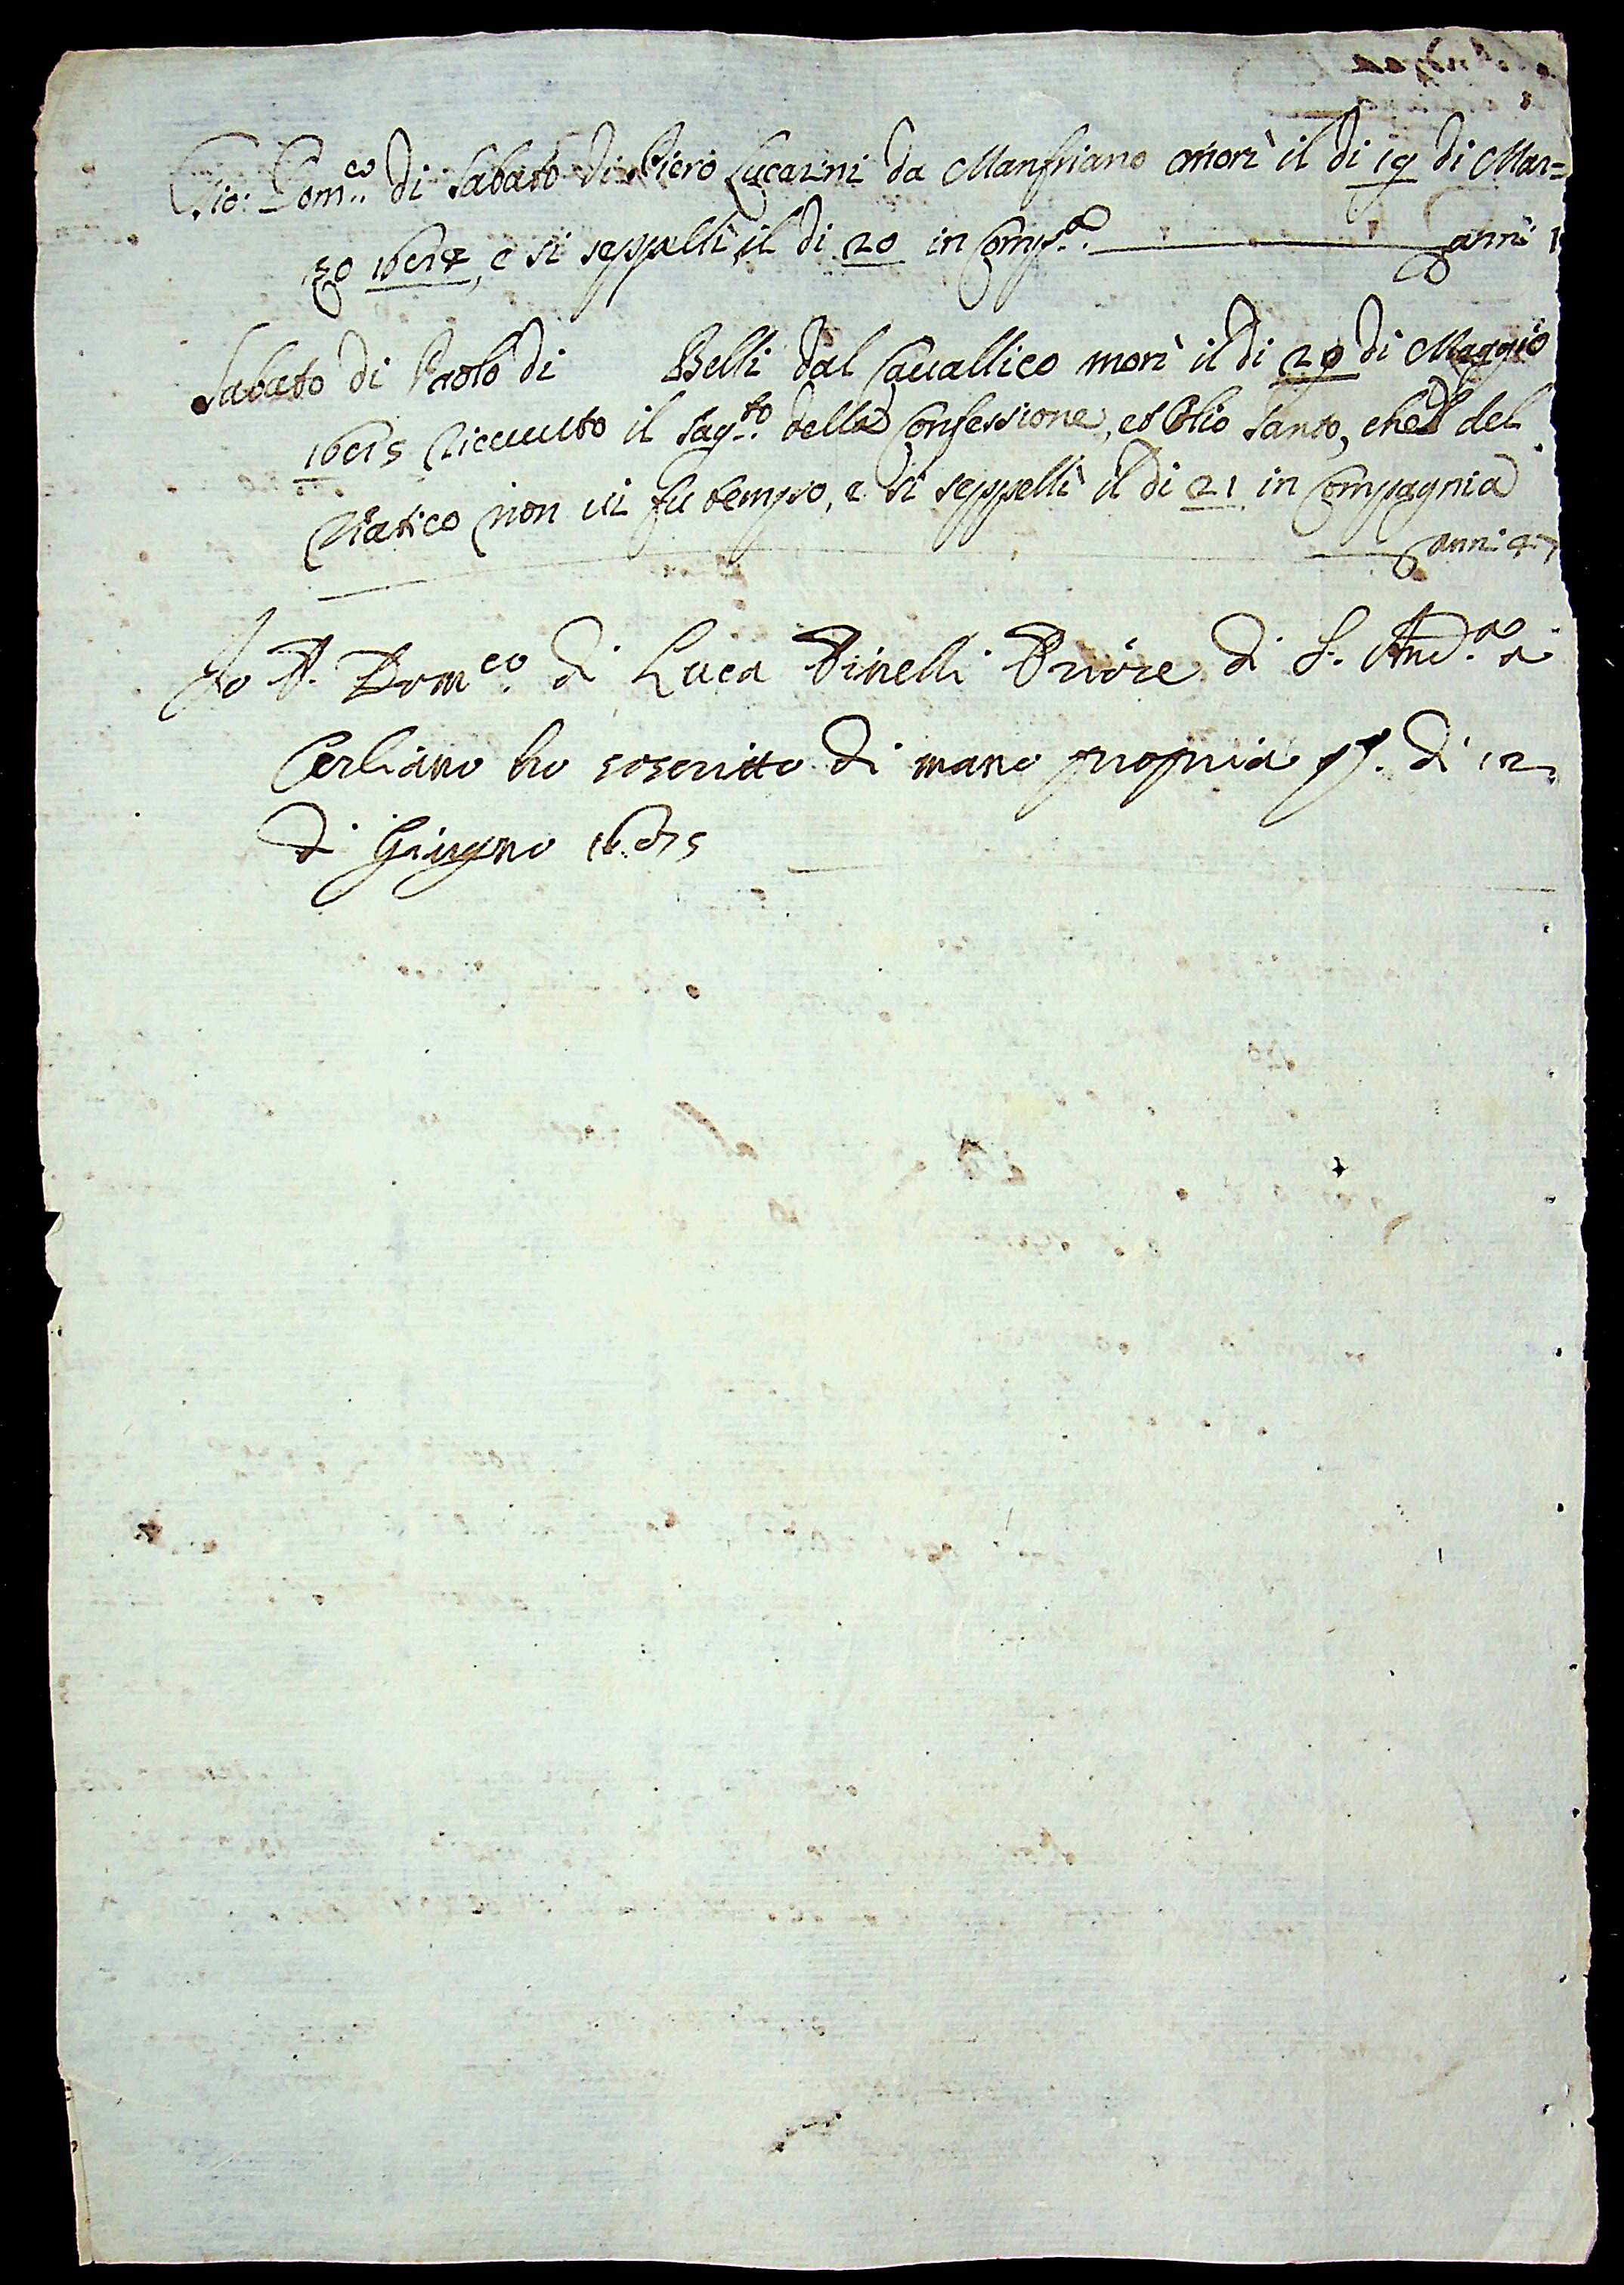 Gio: Dom.co di Sabato di Piero Lucarini da Manfriano morì il di 19 di Mar=
zo 1674, e si seppellì il di 20 in Comp.a anni
Sabato di Paolo di Belli dal Cavallico morì il di 20 di Maggio
1675 Riceuuto il Sag.to della Confessione, et Olio Santo, che del
Viatico non ui fu tempo, e si seppellì il di 21 in Compagnia
anni 47
Io P. Dom.co di Luca Pinelli Priore di S. And.a a
Cerliano ho soscritto di mano propria q.o di 12
di Giugno 1675